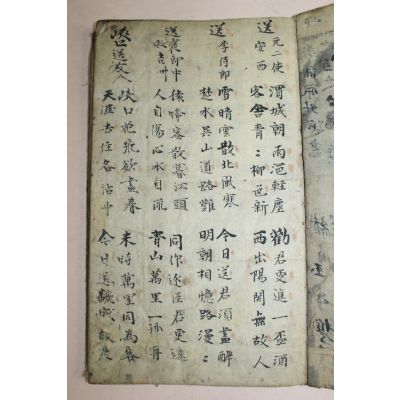 送元二使安西
渭城朝雨浥輕塵 勸君更進一盃酒
客舍青〻柳色新 西出陽関無故人
送李侍郎
雪晴雲散北風寒 今日送君須盡醉
楚水吳山道路難 明朝相憶路漫〻
送裵郎中
吉州
猿啼客散暮江頭 同作逐臣君更遠
人自傷心水自流 青山萬里一孤舟
峽口送友人
峽口花飛欲盡春 來時萬里同為客
天涯去住各沾巾 今日送 故人